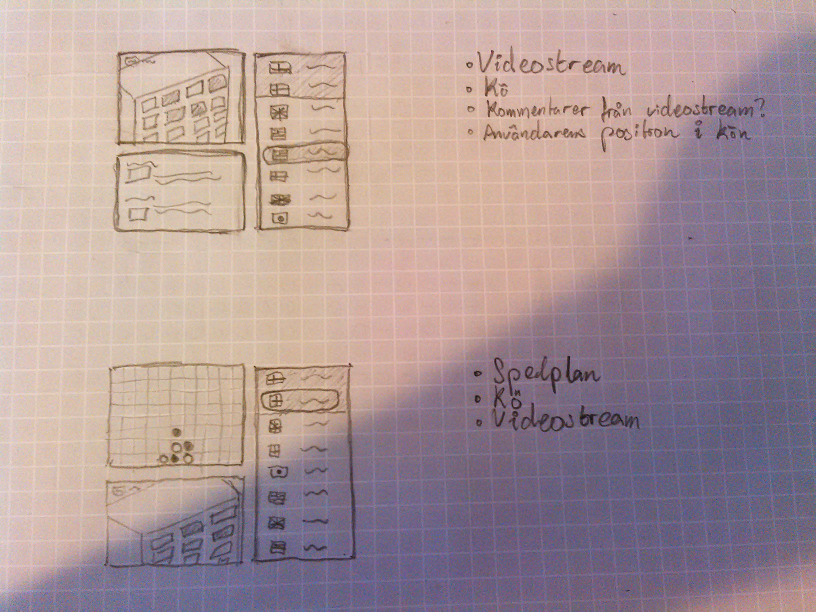 • Videostream
• Kö
• Kommentarer från videostream?
• Användarens position i kön
• Spelplan
• Kö
• Videostream